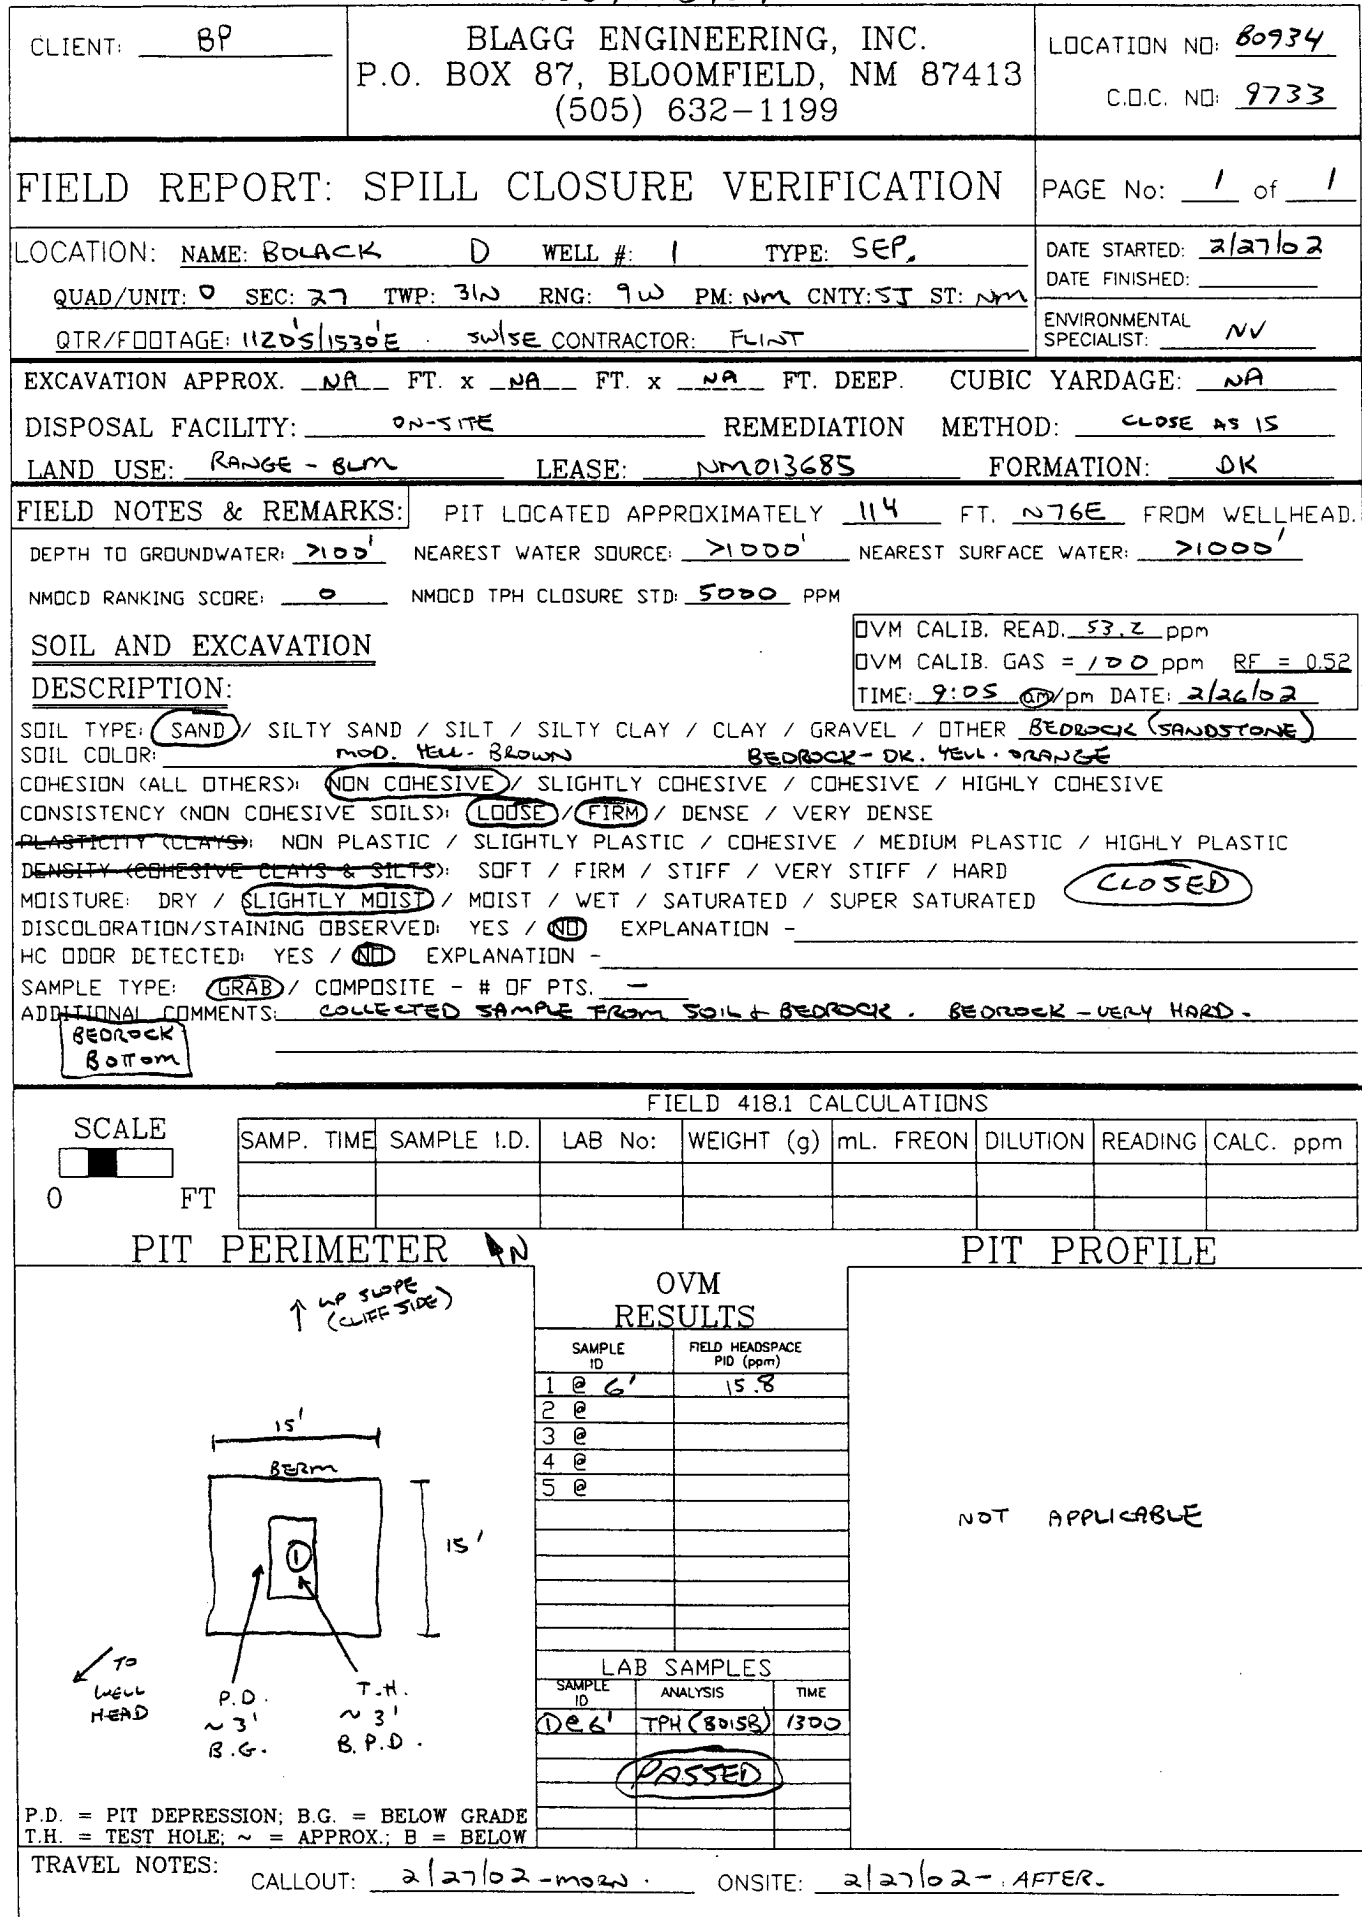 CLIENT: BP
BLAGG ENGINEERING, INC.
P.O. BOX 87, BLOOMFIELD, NM 87413
(505) 632-1199
LOCATION NO: B0934
C.O.C. NO: 9733
FIELD REPORT: SPILL CLOSURE VERIFICATION
PAGE No: 1 of 1
LOCATION: NAME: BOLACK D WELL #: 1 TYPE: SEP.
QUAD/UNIT: O SEC: 27 TWP: 31N RNG: 9W PM: NM CNTY: SJ ST: NM
QTR/FOOTAGE: 1120'S/1530'E SW/SE CONTRACTOR: FLINT
DATE STARTED: 2/27/02
DATE FINISHED:
ENVIRONMENTAL
SPECIALIST: NV
EXCAVATION APPROX. NA FT. x NA FT. x NA FT. DEEP. CUBIC YARDAGE: NA
DISPOSAL FACILITY: ON-SITE REMEDIATION METHOD: CLOSE AS IS
LAND USE: RANGE - BLM LEASE: NM013685 FORMATION: DK
FIELD NOTES & REMARKS: PIT LOCATED APPROXIMATELY 114 FT. N76E FROM WELLHEAD.
DEPTH TO GROUNDWATER: >100' NEAREST WATER SOURCE: >1000' NEAREST SURFACE WATER: >1000'
NMOCD RANKING SCORE: 0 NMOCD TPH CLOSURE STD: 5000 PPM
OVM CALIB. READ. 53.2 ppm
OVM CALIB. GAS = 100 ppm RF = 0.52
TIME: 9:05 am/pm DATE: 2/26/02
SOIL AND EXCAVATION
DESCRIPTION:
SOIL TYPE: SAND / SILTY SAND / SILT / SILTY CLAY / CLAY / GRAVEL / OTHER BEDROCK (SANDSTONE)
SOIL COLOR: MOD. YELL. BROWN BEDROCK - DK. YELL. ORANGE
COHESION (ALL OTHERS): NON COHESIVE / SLIGHTLY COHESIVE / COHESIVE / HIGHLY COHESIVE
CONSISTENCY (NON COHESIVE SOILS): LOOSE / FIRM / DENSE / VERY DENSE
PLASTICITY (CLAYS): NON PLASTIC / SLIGHTLY PLASTIC / COHESIVE / MEDIUM PLASTIC / HIGHLY PLASTIC
DENSITY (COHESIVE CLAYS & SILTS): SOFT / FIRM / STIFF / VERY STIFF / HARD
CLOSED
MOISTURE: DRY / SLIGHTLY MOIST / MOIST / WET / SATURATED / SUPER SATURATED
DISCOLORATION/STAINING OBSERVED: YES / NO EXPLANATION -
HC ODOR DETECTED: YES / NO EXPLANATION -
SAMPLE TYPE: GRAB / COMPOSITE - # OF PTS. -
ADDITIONAL COMMENTS: COLLECTED SAMPLE FROM SOIL & BEDROCK. BEDROCK - VERY HARD.
BEDROCK
BOTTOM
FIELD 418.1 CALCULATIONS
SCALE
0 FT
SAMP. TIME SAMPLE I.D. LAB No: WEIGHT (g) mL. FREON DILUTION READING CALC. ppm
PIT PERIMETER N
PIT PROFILE
UP SLOPE
(CLIFF SIDE)
15'
BERM
1
15'
TO
WELL
HEAD
P.D.
~ 3'
B.G.
T.H.
~ 3'
B.P.D.
P.D. = PIT DEPRESSION; B.G. = BELOW GRADE
T.H. = TEST HOLE; ~ = APPROX.; B = BELOW
OVM
RESULTS
SAMPLE ID FIELD HEADSPACE PID (ppm)
1 @ 6' 15.8
2 @
3 @
4 @
5 @
LAB SAMPLES
SAMPLE ID ANALYSIS TIME
1 @ 6' TPH (8015B) 1300
PASSED
NOT APPLICABLE
TRAVEL NOTES: CALLOUT: 2/27/02 - MORN. ONSITE: 2/27/02 - AFTER.